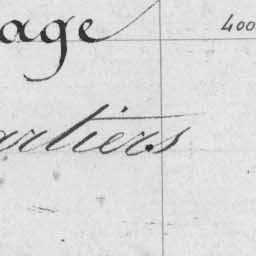 age 400
artiers